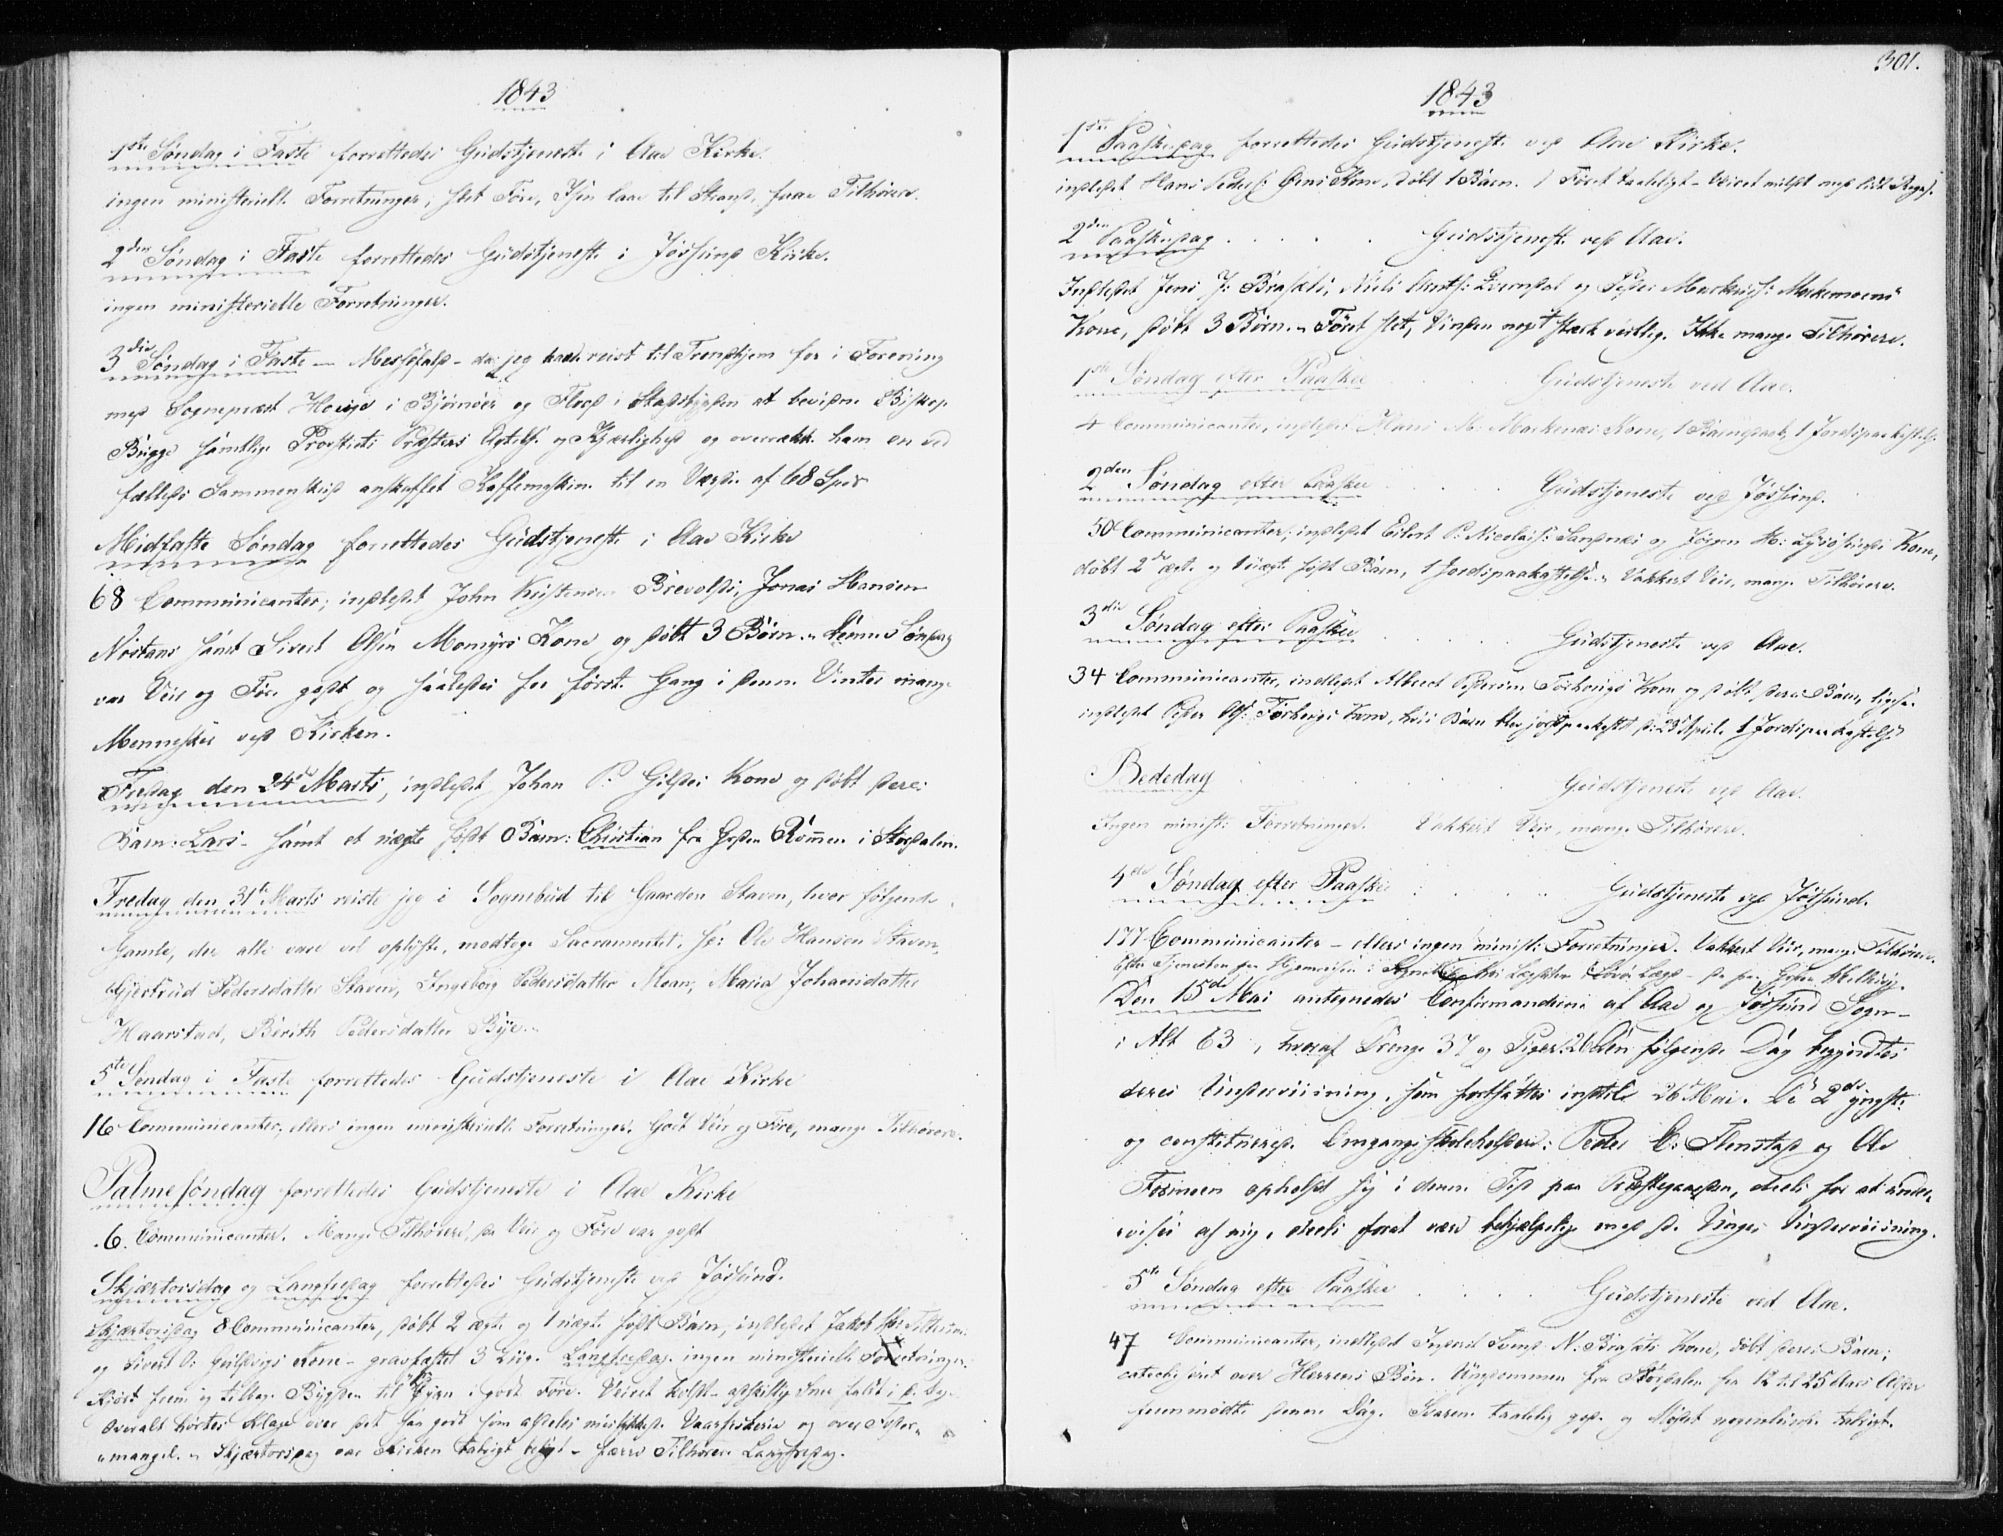 1843
1ste Søndag i Faste forrettedes Gudstjeneste i Aae Kirke.
ingen ministerielle Forretninger, slet Føre, Isen laae til Strand, faae Tilhørere.
2den Søndag i Faste forrettedes Gudstjeneste i Jøssund Kirke.
ingen ministerielle Forretninger.
3die Søndag i Faste — Messefald — da jeg havde reist til Trondhjem for i Forening
med Sognepræst i Bjørnøer og i Stadsbygden at bevidne Biskop
Bugge samtlige Provstiets Præsters Agtelse og Kjærlighed og overrække ham en ved
fælleds Sammenskud anskaffet Kaffemaskine til en Værdie af 68 Spdr
Midfaste Søndag forrettedes Gudstjeneste i Aae Kirke
68 Communicanter; indledet John Kristensen Brevolds, Jonas Hansen
Nøstans samt Sivert Olsen Momyrs Kone og døbt 3 Børn. Denne Søndag
var Veir og Føre godt og saaledes for første Gang i denne Vinter mange
Mennesker ved Kirken.
Fredag den 24de Marts, indledet Johan P. Gilde's Kone og døbt deres
Barn: Lars - samt et uægte født Barn: Christian fra Gaden Rømmen i Stordalen.
Fredag den 31te Marts reiste jeg i Sognebud til Gaarden Staven, hvor følgende
Gamle, der alle vare vel oplyste, modtoge Sacramentet, so: Ole Hansen Staven,
Gjertrud Pedersdatter Staven, Ingeborg Pedersdatter Moan, Maria Johansdatter
Haarstad, Berith Pedersdatter Bye.
5te Søndag i Faste forrettedes Gudstjeneste i Aae Kirke
16 Communicanter, ellers ingen ministerielle Forretninger. Godt Veir og Føre, mange Tilhørere.
Palmesøndag forrettedes Gudstjeneste i Aae Kirke
6. Communicanter. Mange Tilhørere, da Veir og Føre var godt
Skjærtorsdag og Langfredag forrettedes Gudstjeneste ved Jøssund.
Skjærtorsdag 8 Communicanter, døbt 2 ægte og 1 uægte født Barn, indledet Jakob
og Sivert O: Kone - gravfæstet 3 Liig. Langfredag ingen ministerielle Forretninger.
Kjørt frem og tilbage Bygden til Byen i godt Føre. Veiret koldt - adskillig Snee faldt i d. Dage.
Overalt hørtes Klage over det saa godt som aldeles mislykkede Vaarfiskerie og over Foder-
mangel. Skjærtorsdag var Kirken talrigt besøgt - færre Tilhørere Langfredag.
301.
1843
1ste Paaskedag forrettedes Gudstjeneste ved Aae Kirke.
indledet Hans Peders: Kone, døbt 1 Barn. Føret taaleligt - Veiret mildt med lidt Regn.
2den Paaskedag . . . . . Gudstjeneste ved Aae.
Indledet Jens J: Brasæts, Niels Arnts: og Peder Kone, døbt 3 Børn. Føret slet, Vinden noget stærk vestlig. Ikke mange Tilhørere.
1ste Søndag efter Paaske . . . . Gudstjeneste ved Aae.
4 Communicanter, indledet Hans M: Markenæs Kone, 1 Barnedaab, 1 Jordspaakastelse
2den Søndag efter Paaske . . . . Gudstjeneste ved Jøssund.
50 Communicanter; indledet Eilert P. Nicolais: Sandnæs og Jørgen H: Lysøsunds Kone,
døbt 2de ægte og 1 uægte født Barn, 1 Jordspaakastelse. Vakkert Veir, mange Tilhørere.
3die Søndag efter Paaske . . . . . Gudstjeneste ved Aae.
34 Communicanter, indledet Albert Pedersen Kone og døbt deres Barn, ligesaa
indledet Peder Ols: Kone, hvis Barn blev jordspaakastet d: 23 April. 1 Jordspaakastelse
Bededag . . . . . . Gudstjeneste ved Aae.
Ingen minist: Forretninger. Vakkert Veir, mange Tilhørere.
4de Søndag efter Paaske . . . . Gudstjeneste ved Jøssund.
177 Communicanter - ellers ingen minist: Forretninger. Vakkert Veir, mange Tilhørere.
Efter Tjenesten paa Hjemreisen i
Den 15de Mai antegnedes Confirmanderne af Aae og Jøssund Sogn -
i Alt 63, hvoraf Drenge 37 og Piger 26. Den følgende Dag begyndtes
deres Underviisning, som fortsattes indtil d. 26 Mai. De 2de yngste
og constituerede Omgangsskoleholdere: Peder C: Stenstad og Ole
opholdt sig i denne Tid paa Præstegaarden, deels for at under-
vises af mig, deels forat være behjælpelig med de Unges Underviisning.
5te Søndag efter Paaske . . . . Gudstjeneste ved Aae.
47 Communicanter, indledet N: Brasæts Kone, døbt deres Barn;
catechiseret over Herrens Bøn. Ungdommen fra Stordalen fra 12 til 25 Aars Alder
fremmødte denne Dag. Svarene taalelig gode og Mødet nogenlunde talrigt.